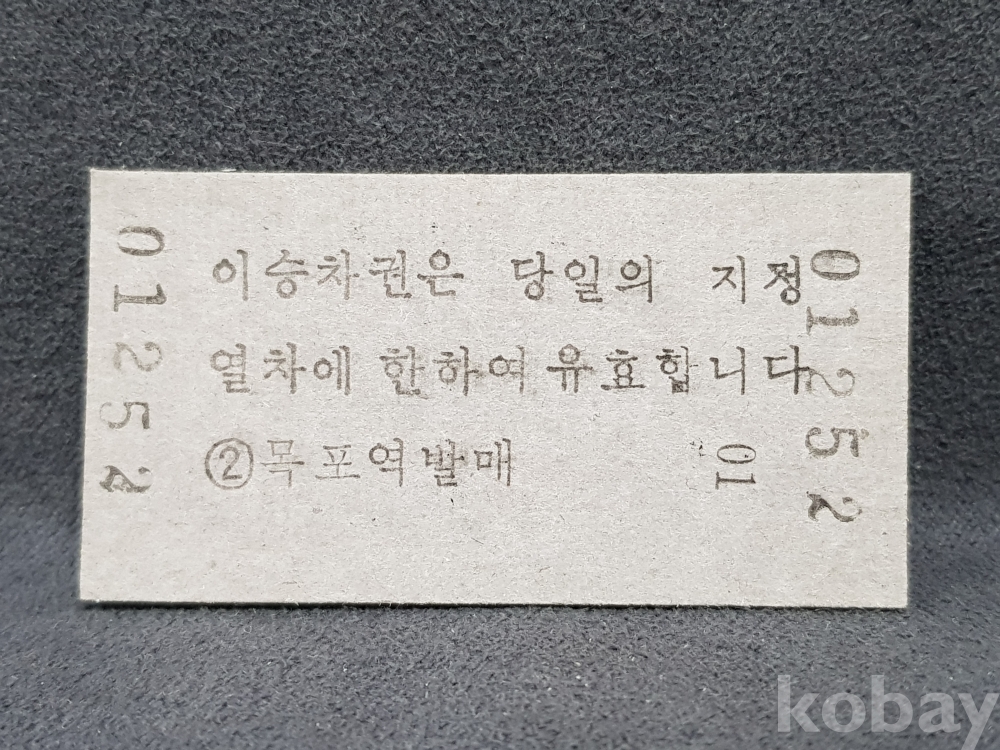 이승차권은 당일의 지정
열차에 한하여 유효합니다
②목포역발매 01
01252
01252
kobay